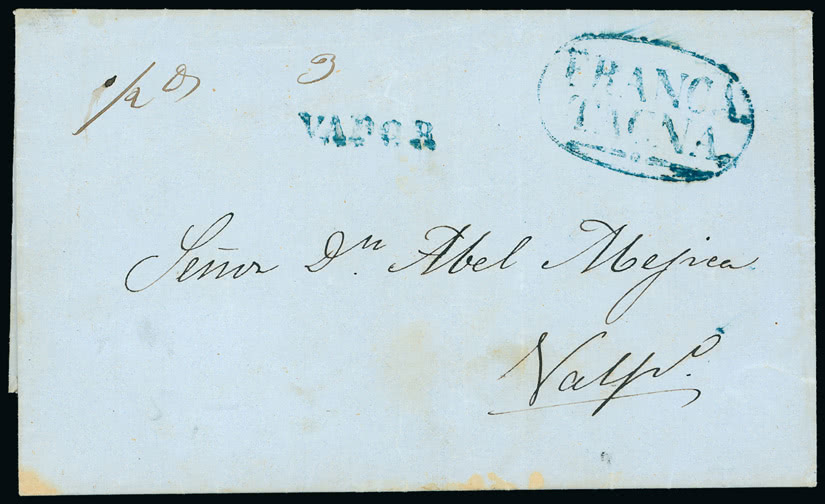 1/2 3
FRANCA
TACNA
VAPOR
Señor Dn. Abel Mejica
Valpo.